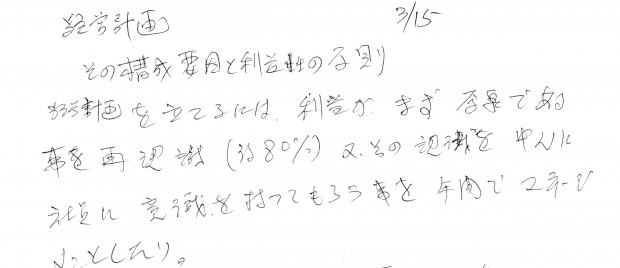 経営計画 3/15
その構成要因と利益性の原則
経営計画を立てるには、利益が まず 必要である
事を再認識(約80%)又、その認識を中心に
社員に意識を持ってもらう事を年間でマネージ
メントとしたい。